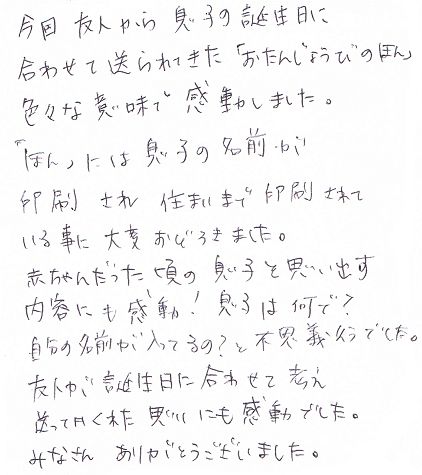 今回 友人から 息子の誕生日に
合わせて送られてきた「おたんじょうびのほん」
色々な意味で 感動しました。
「ほん」には 息子の名前が
印刷 され 住まいまで印刷されて
いる事に大変 おどろきました。
赤ちゃんだった頃の 息子を思い出す
内容にも感動！ 息子は何で？
自分の名前が入ってるの？と 不思義そうでした。
友人が 誕生日に合わせて 考え
送ってくれた 思いにも感動でした。
みなさん ありがとうございました。